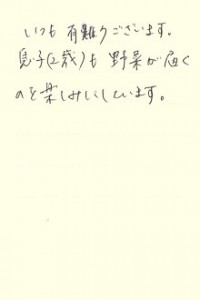 いつも有難うございます。
息子(2歳)も野菜が届く
のを楽しみにしています。